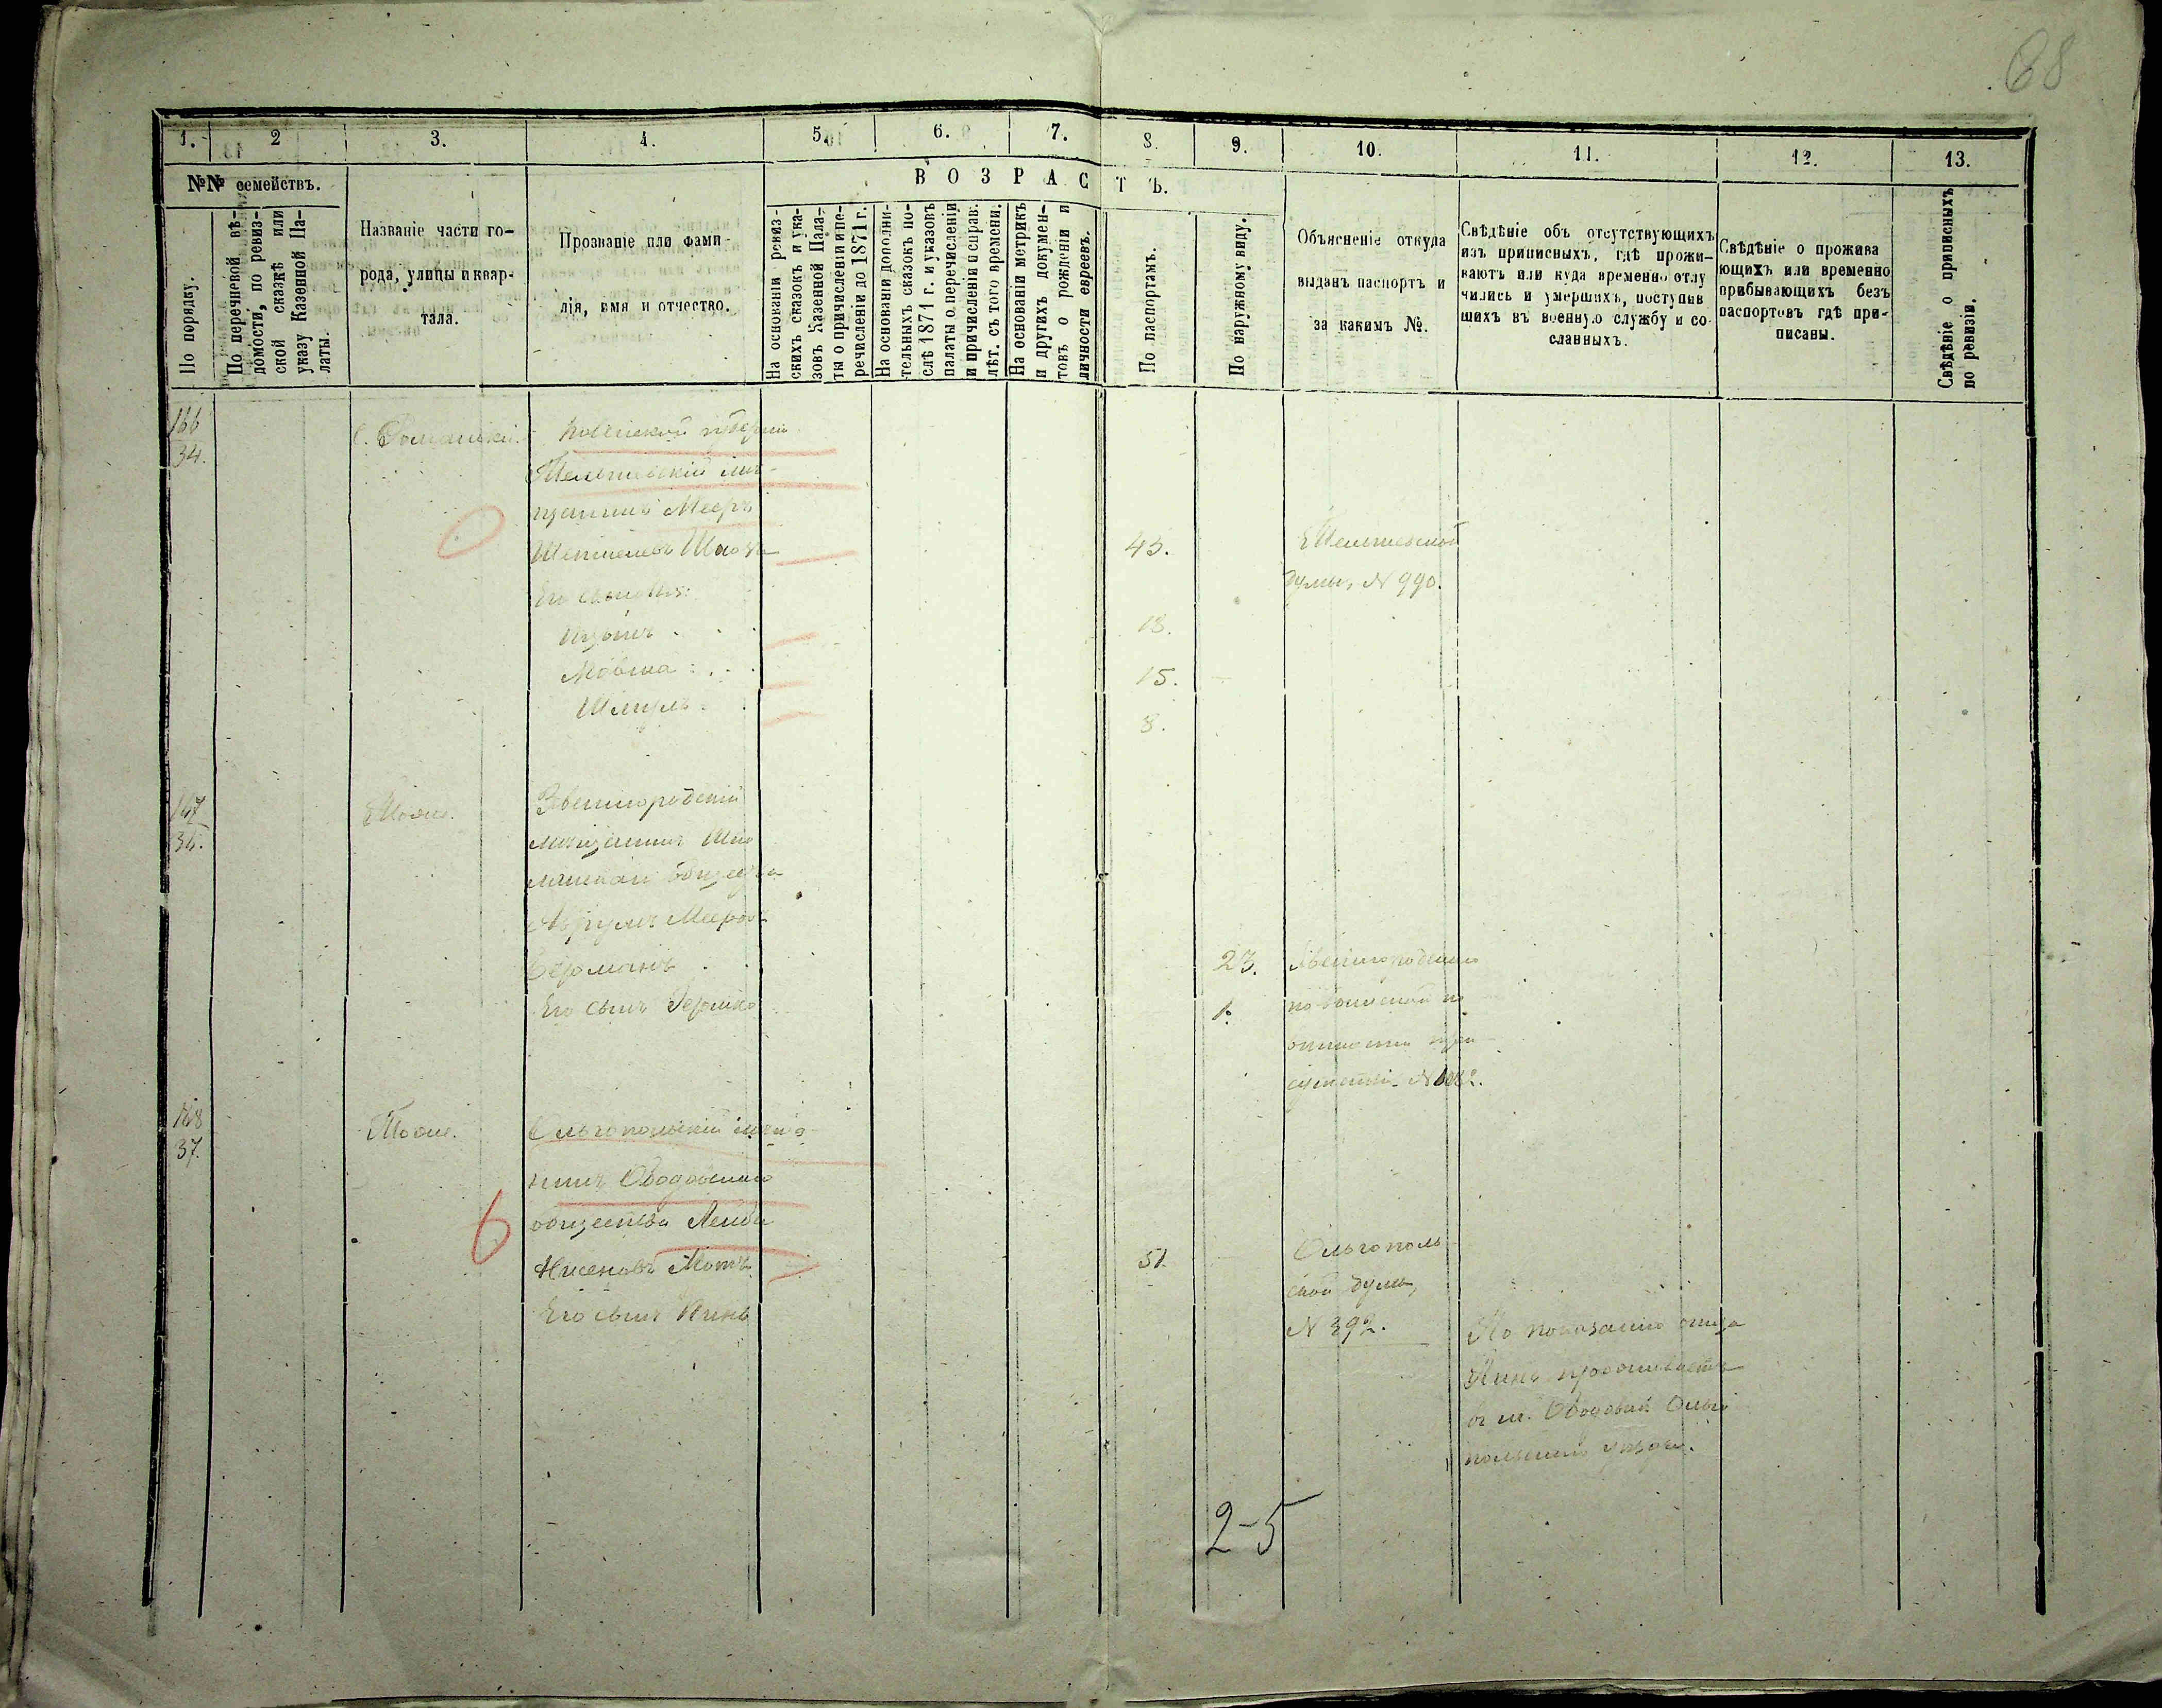 68
1. 2 3. 4. 5. 6. 7. 8. 9. 10. 11. 12. 13.
№№ семействъ.
По порядку.
По перечневой вѣ-
домости, по ревиз-
ской сказкѣ или
указу Казенной Па-
латы.
Названіе части го-
рода, улицы и квар-
тала.
Прозваніе или фами-
лія, имя и отчество.
ВОЗРАСТЪ.
На основаніи ревиз-
скихъ сказокъ и ука-
зовъ Казенной Пала-
ты о причисленіи и пе-
речисленіи до 1871 г.
На основаніи дополни-
тельныхъ сказокъ по-
слѣ 1871 г. и указовъ
палаты о перечисленіи
и причисленіи и справ.
лѣт. съ того времени.
На основаніи метрикъ
и другихъ докумен-
товъ о рожденіи и
личности евреевъ.
По паспортамъ.
По наружному виду.
Объясненіе откуда
выданъ паспортъ и
за какимъ №.
Свѣдѣніе объ отсутствующихъ
изъ приписныхъ, гдѣ прожи-
ваютъ или куда временно отлу
чились и умершихъ, поступив
шихъ въ военную службу и со-
сланныхъ.
Свѣдѣніе о прожива
ющихъ или временно
прибывающихъ безъ
паспортовъ гдѣ при-
писаны.
Свѣдѣніе о приписныхъ
по ревизіи.
166
34.
с. Ромашки.
Ковенской губерніи
Тельшевскій мѣ-
щанинъ Мееръ
43.
Тельшевской
Его сыновья:
думы, № 990.
18.
Мовша
15.
Шмуль
8.
167
Тоже.
Звенигородскій
мѣщанинъ Шпо
лянскаго общества
Мееровъ
Берманъ
23.
Звенигородскаго
Его сынъ Гершко
1.
по воинской по
винности при
сутствія №
168
37.
Тоже.
Ольгопольскій мѣща
нинъ Ободовскаго
6
общества Лейба
51.
Ольгополь
ской думы,
Его сынъ Пинь
№ 392.
По показанію отца
Пинь проживаетъ
въ м. Ободовкѣ Ольго
польскаго уѣзда.
2-5